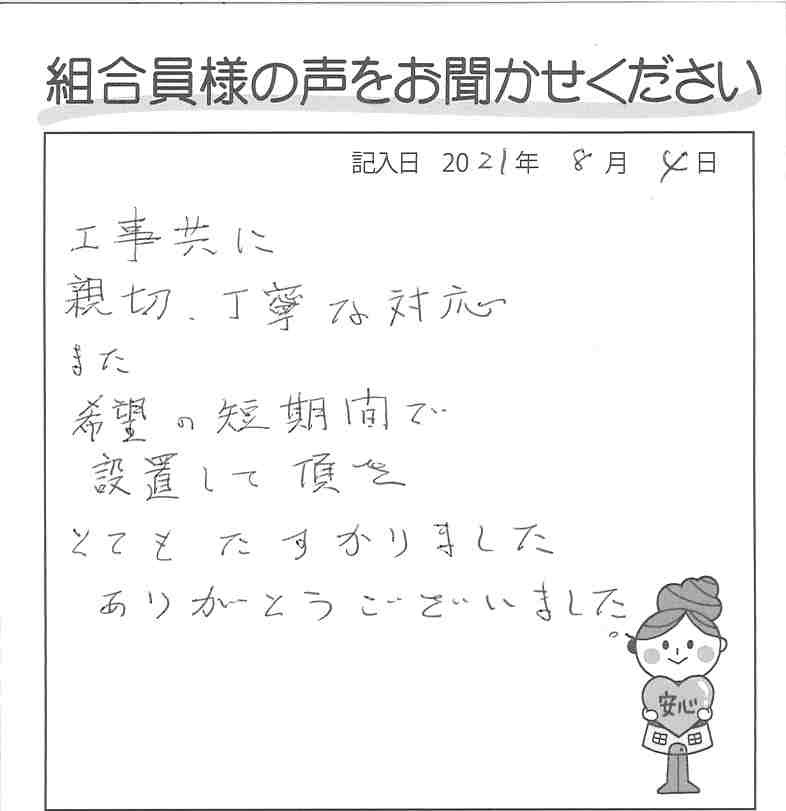 組合員様の声をお聞かせください
記入日 2021年 8月 4日
工事共に
親切、丁寧な対応
また
希望の短期間で
設置して頂き
とても たすかりました
ありがとうございました。
安心